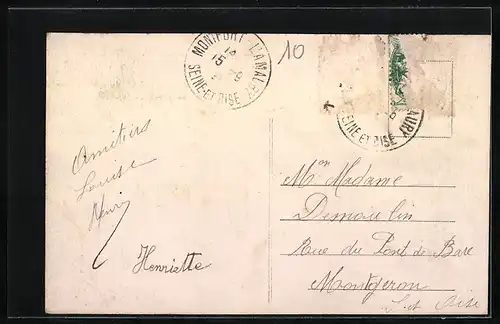 MONTFORT L'AMAURY
15
SEINE-ET-OISE
10
AURY
SEINE-ET-OISE
Amitiés
Louise
Henri
Henriette
Mon Madame
Demoulin
Rue du Pont de Bare
Montgeron
S. et Oise